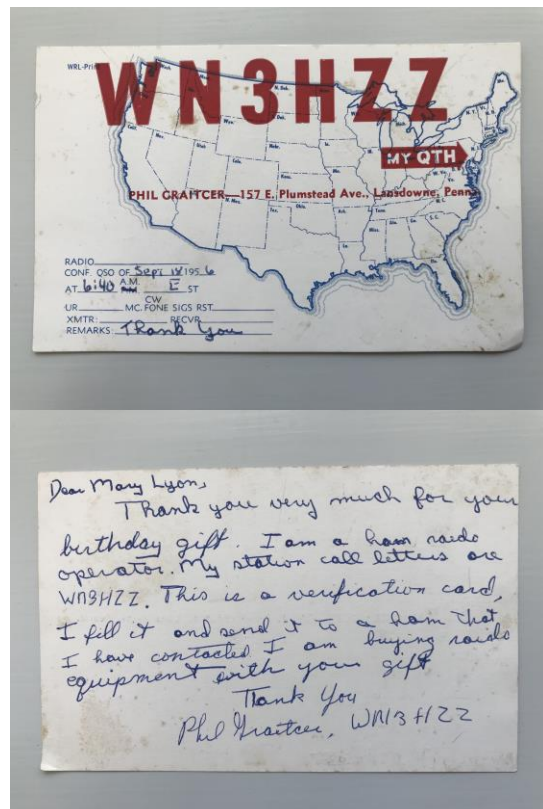 WRL-Print
WN3HZZ
MY QTH
PHIL GRAITCER—157 E. Plumstead Ave., Lansdowne, Penna.
RADIO
CONF. QSO OF Sept 18 195 6
AT 6:40 A.M. E ST
CW
UR MC. FONE SIGS RST
XMTR: RECVR
REMARKS: Thank You
Dear Mary Lyon,
Thank you very much for your
birthday gift. I am a ham raido
operator. My station call letters are
WN3HZZ. This is a verification card,
I fill it and send it to a ham that
I have contacted I am buying raido
equipment with your gift
Thank You
Phil Graitcer, WN3HZZ